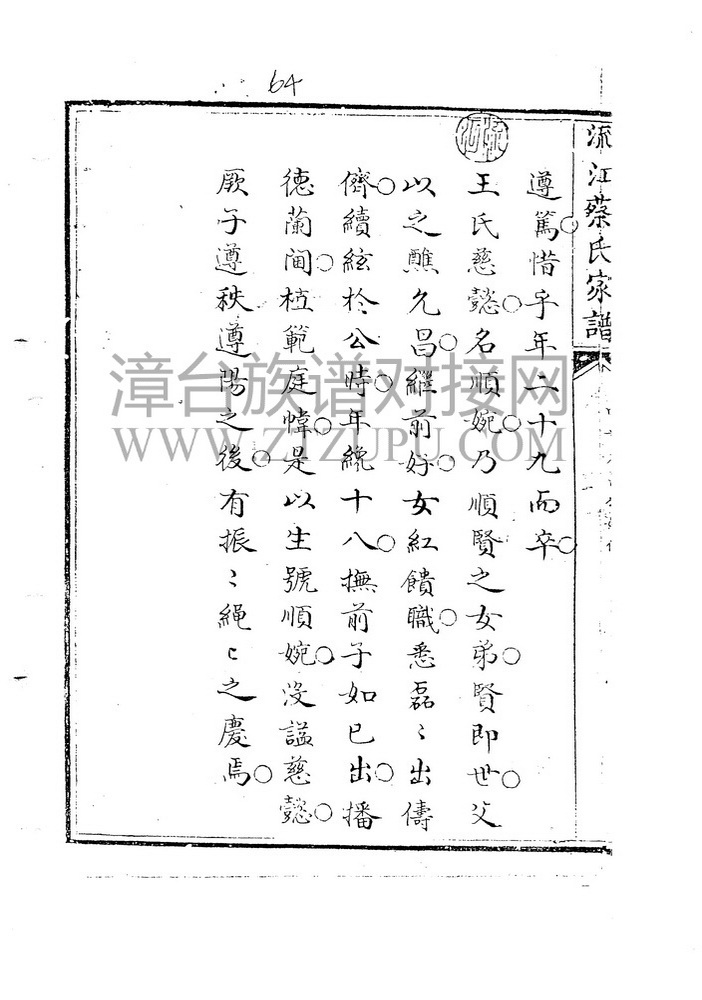 64
流江蔡氏家譜
遵篤○惜乎年二十九而卒○
王氏慈懿○名順婉○乃順賢之女弟○賢即世○父
以之醮允昌○繼前好○女紅饋職○悉磊〻出儔
儕○續絃於公時○年纔十八○撫前子如已出○播
德蘭閫○植範庭幃○是以生號順婉○沒謚慈懿○
厥子遵秩遵陽之後○有振〻繩〻之慶焉○
漳台族谱对接网
WWW.ZTZUPU.COM